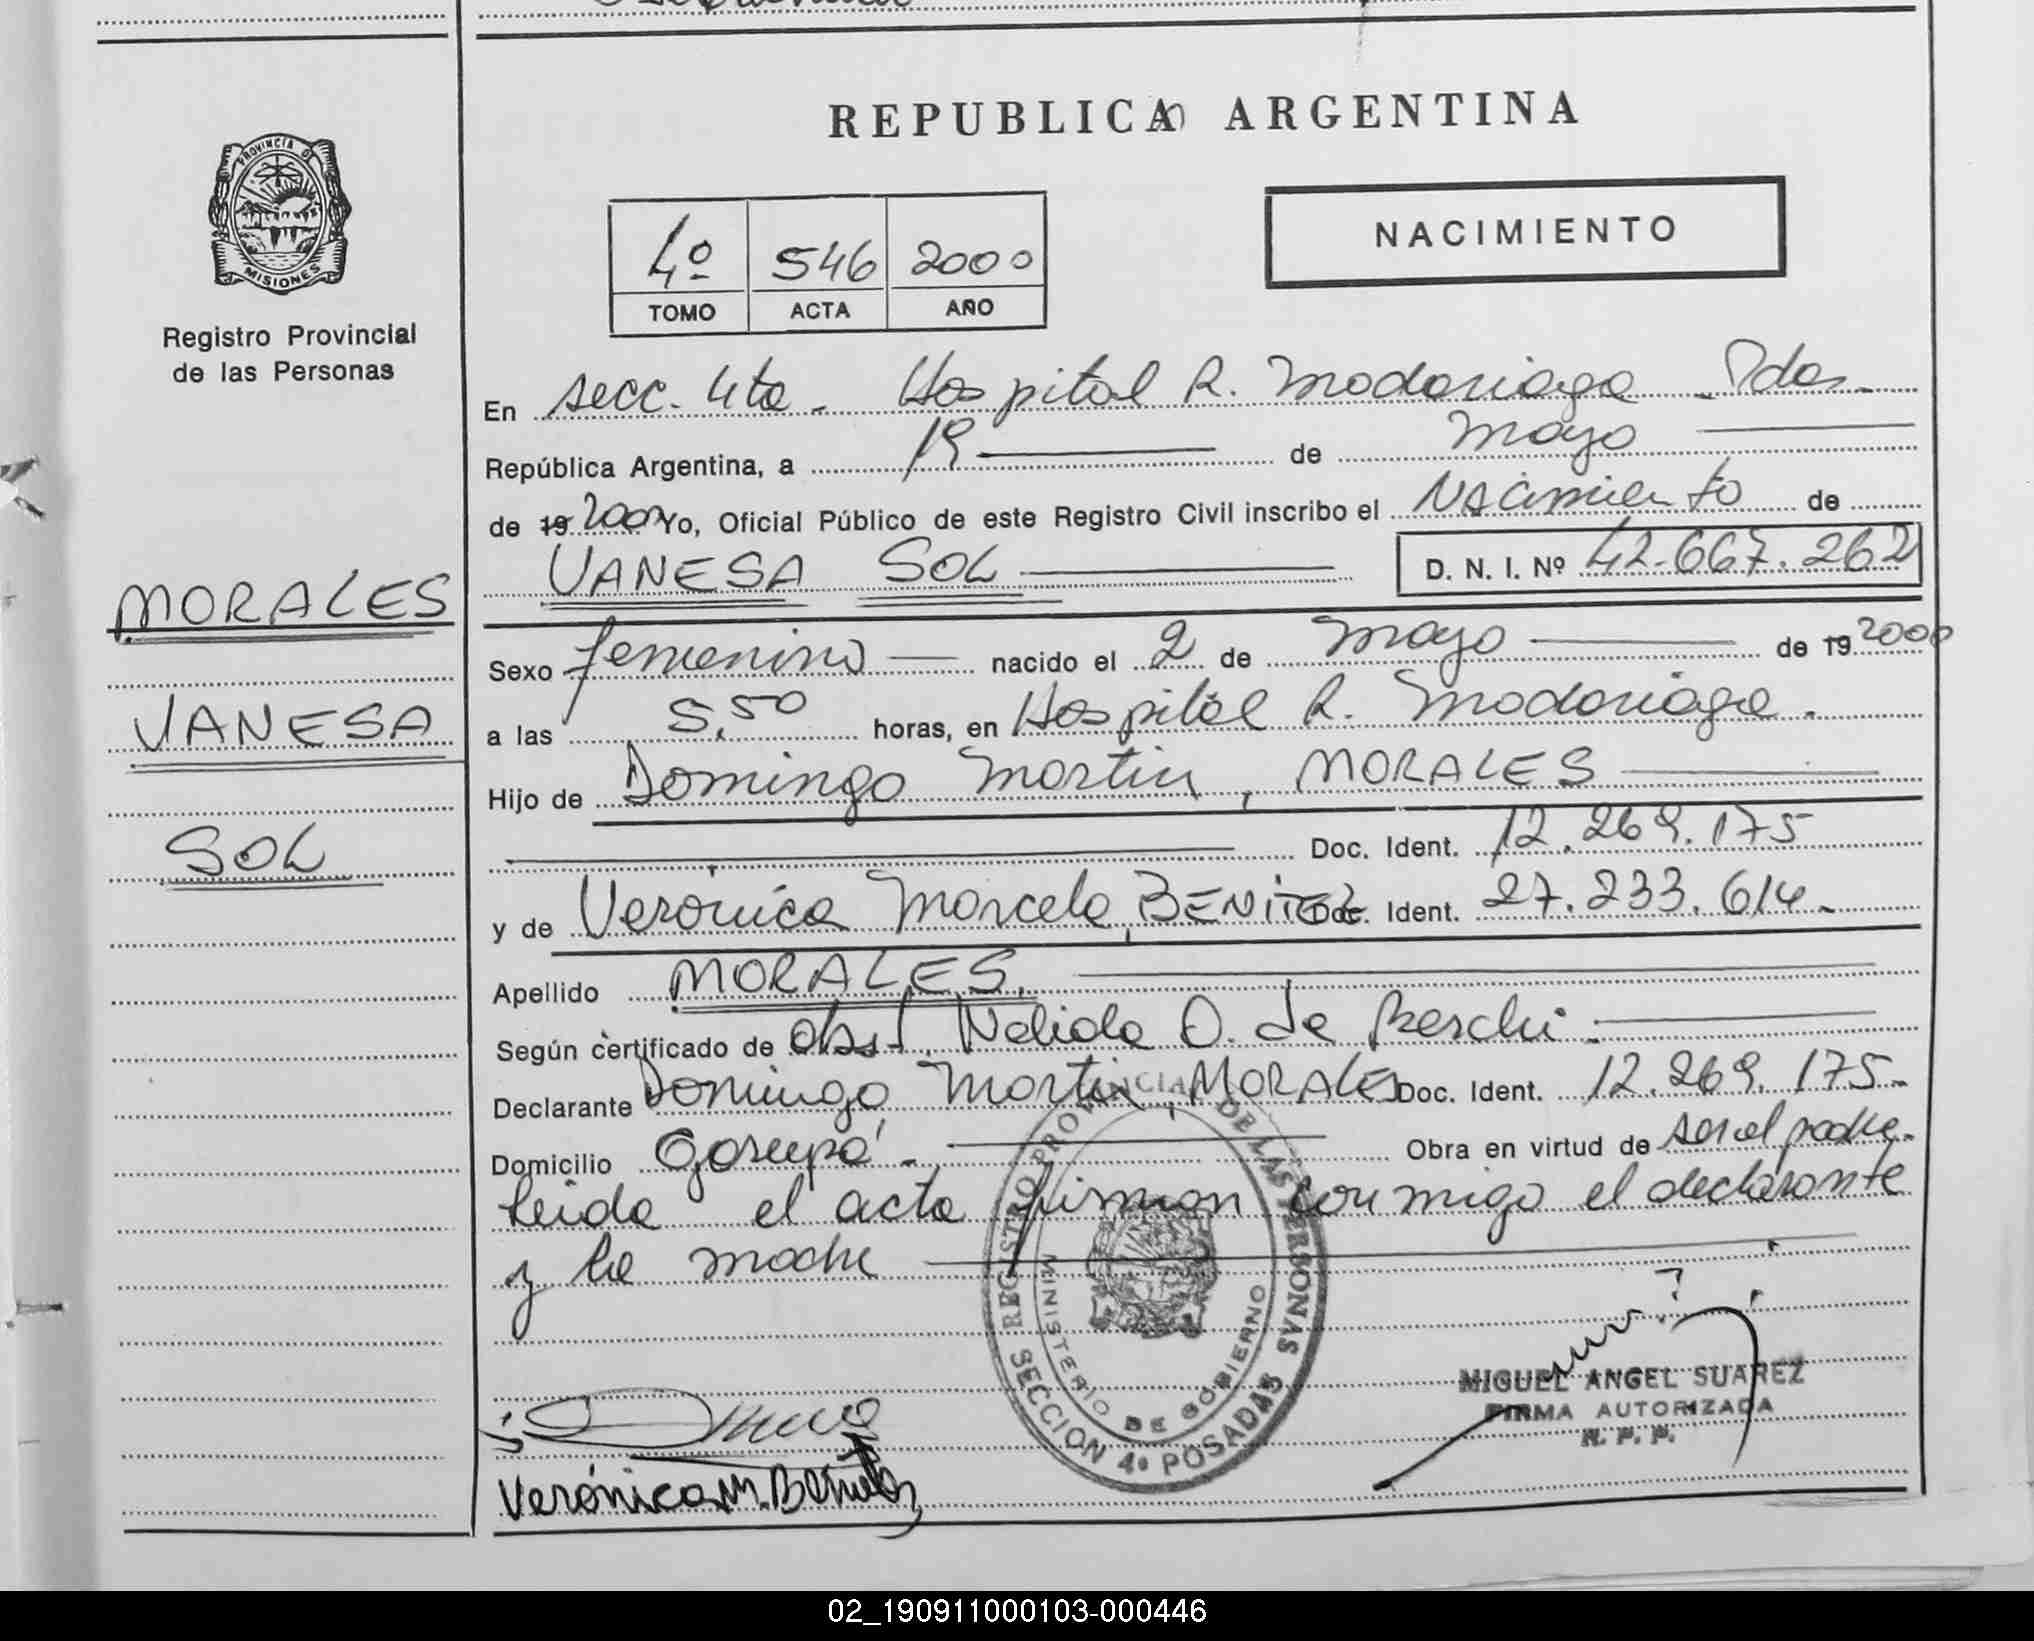 REPUBLICA ARGENTINA
PROVINCIA DE
MISIONES
Registro Provincial
de las Personas
NACIMIENTO
4º 546 2000
TOMO ACTA AÑO
En secc. 4ta - Hospital R. Madariaga - Pdas.
República Argentina, a 19 de Mayo
de 19 2000 Yo, Oficial Público de este Registro Civil inscribo el Nacimiento de
VANESA SOL D. N. I. Nº 42.667.262
MORALES
VANESA
SOL
Sexo femenino nacido el 2 de Mayo de 19 2000
a las 5,50 horas, en Hospital R. Madariaga.
Hijo de Domingo Martin, MORALES
Doc. Ident. 12.269.175
y de Verónica Marcela, BENITEZ Doc. Ident. 27.233.614.
Apellido MORALES.
Según certificado de obst. Nelida O. de
Declarante Domingo Martin, MORALES Doc. Ident. 12.269.175.
Domicilio Garupá - Obra en virtud de ser el padre.
Leida el acta firman conmigo el declarante
y la madre
REGISTRO PROVINCIAL DE LAS PERSONAS
MINISTERIO DE GOBIERNO
SECCION 4º POSADAS
MIGUEL ANGEL SUAREZ
FIRMA AUTORIZADA
R. P. P.
Verónica M. Benitez
02_190911000103-000446